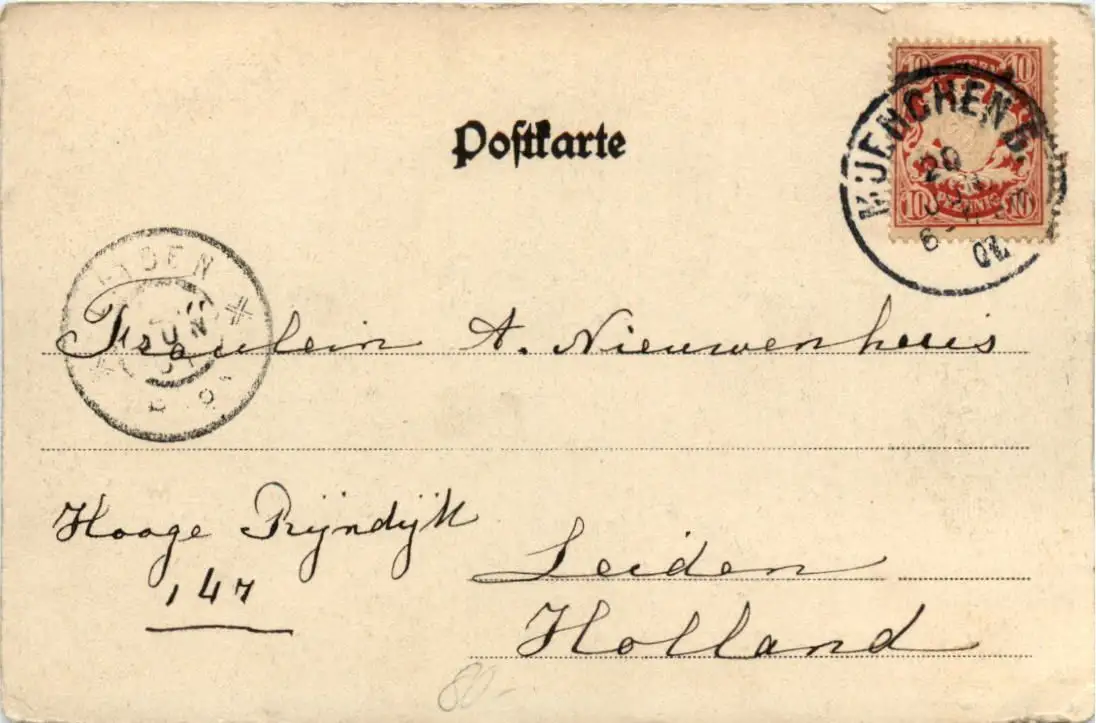 Postkarte
10 10
MUENCHEN 5.
10 PFENNIG 10
LEIDEN
JUN
Fräulein A. Nieuwenhuis
Hooge Rijndijk
147
Leiden
Holland
80-